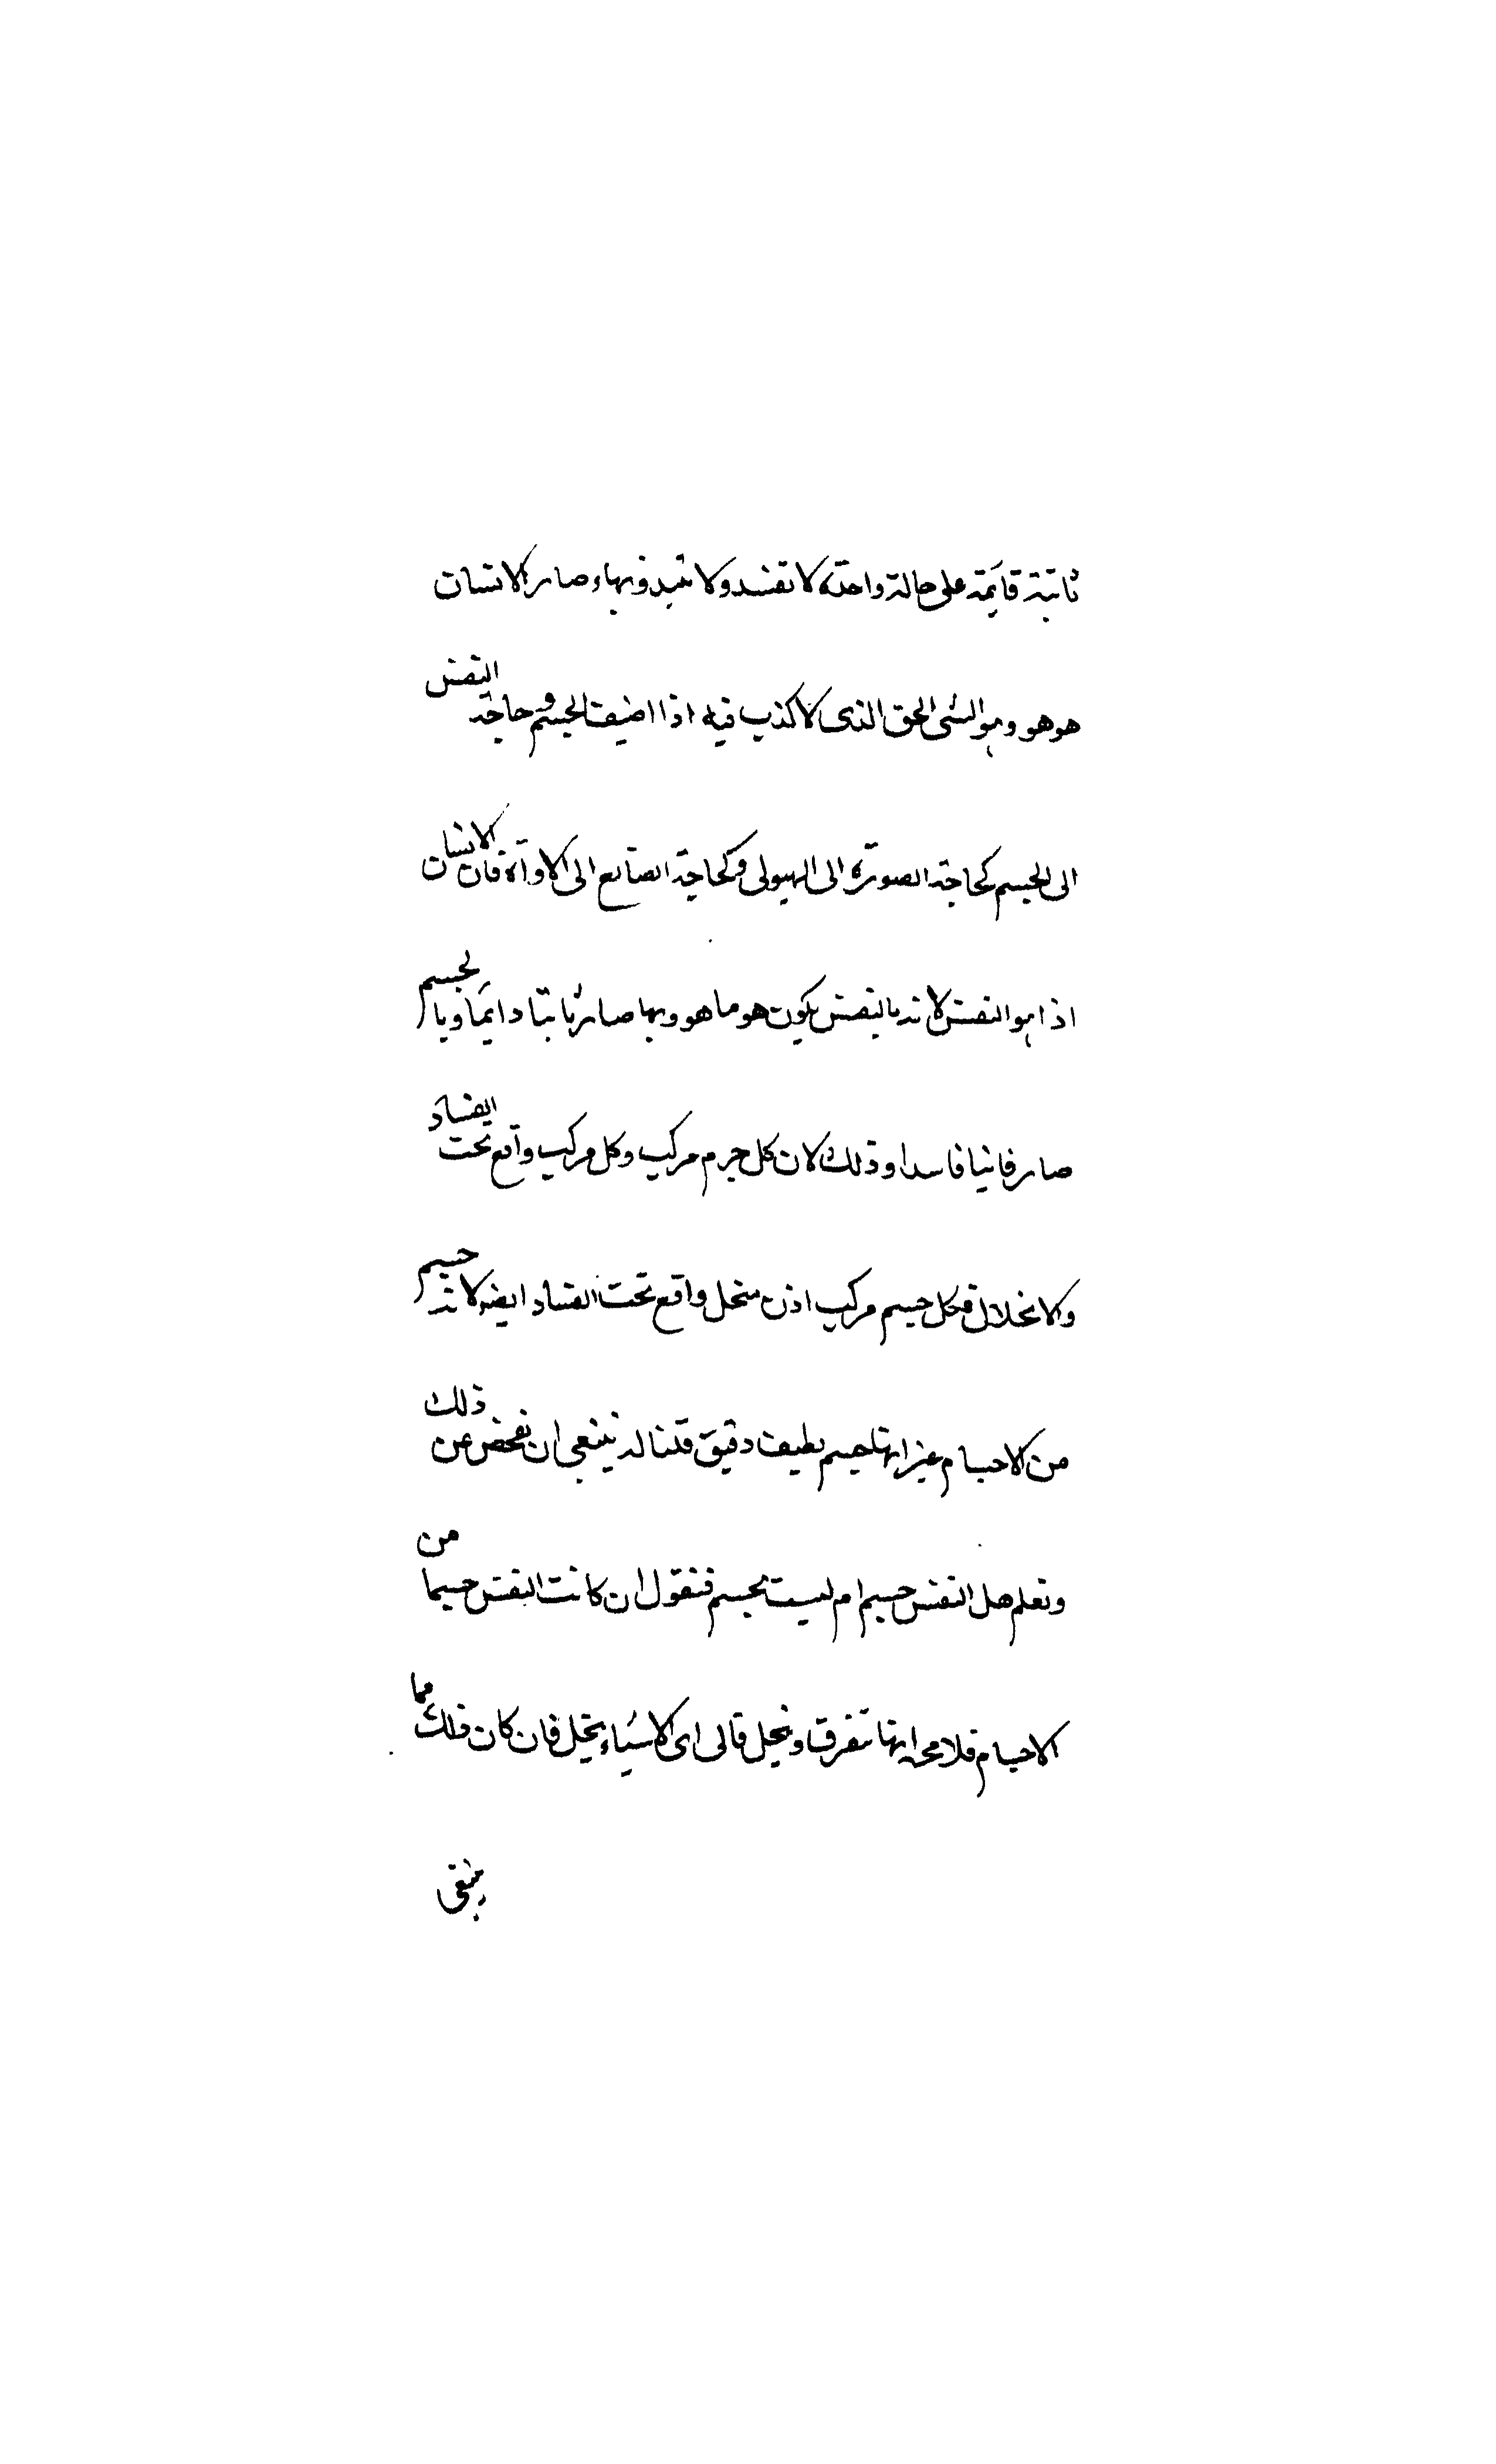 ثابتة قايمة على حالة واحدة لا تفسد ولا تبيد وبها صار الانسان
هو هو وهو الشى الحق الذى لا كذب فيه اذا اضيف الجسم وحاجة النفس
الى الجسم كحاجة الصورة الى الهيولى وكحاجة الصانع الى الاواة فان الانسان
اذا هو النفس لانه بالنفس يكون هو ما هو وبها صار ثابتا دايما وبالجسم
صار فانيا فاسدا وذلك لان كل جرم مركب وكل مركب واقع تحت الفساد
والانحلال فكل جسم مركب اذن منحل واقع تحت الفساد ايضه لانه جسم
من الاجسام غير انها جسم لطيف دقيق قلنا له ينبغى ان نفحص عن ذلك
ونعلم هل النفس جسم ام ليست بجسم فنقول ان كانت النفس جسما من
الاجسام فلا مح انها تتفرق وتنحل فالى اى الاشياء ينحل فان كان ذلك مما
ينبغى